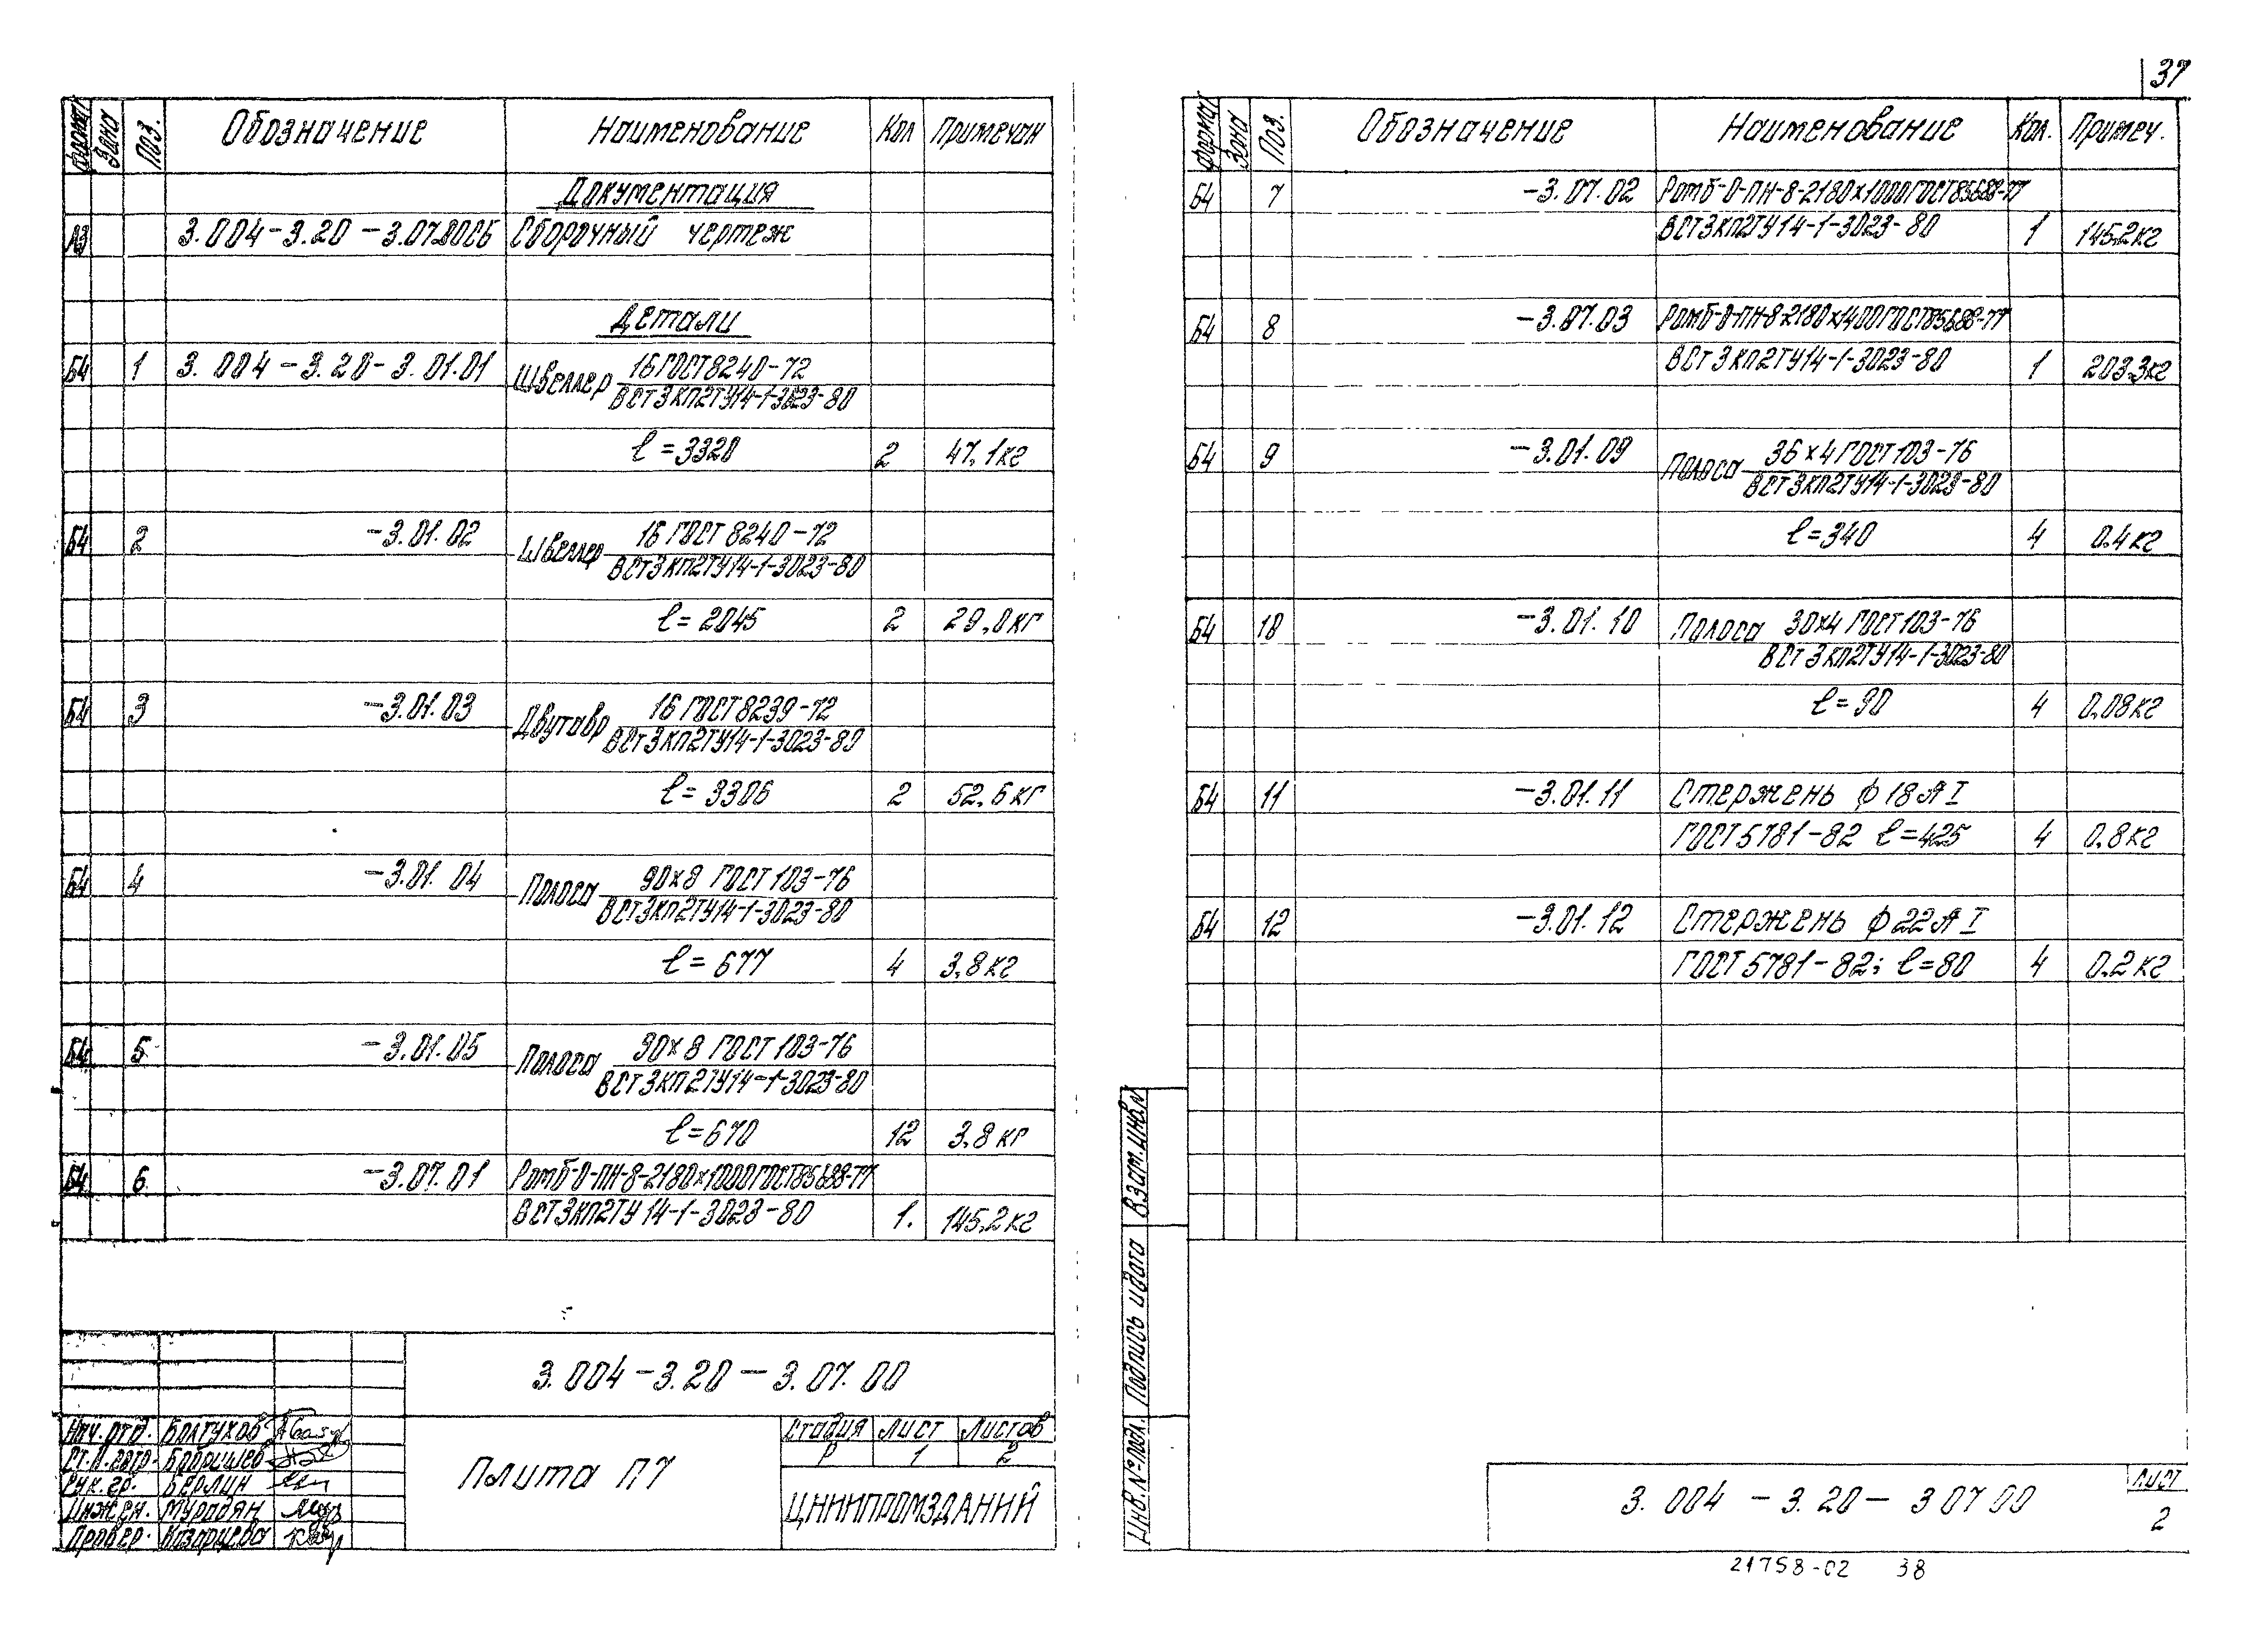 37
Формат Зона Поз. Обозначение Наименование Кол Примечан
Документация
А3 3.004-3.20-3.07.00СБ Сборочный чертеж
Детали
Б4 1 3.004-3.20-3.01.01 Швеллер 16 ГОСТ 8240-72
ВСт3кп2ТУ14-1-3023-80
ℓ=3320 2 47,1кг
Б4 2 -3.01.02 Швеллер 16 ГОСТ 8240-72
ВСт3кп2ТУ14-1-3023-80
ℓ=2045 2 29,0кг
Б4 3 -3.01.03 Двутавр 16 ГОСТ 8239-72
ВСт3кп2ТУ14-1-3023-80
ℓ=3306 2 52,6кг
Б4 4 -3.01.04 Полоса 90×8 ГОСТ 103-76
ВСт3кп2ТУ14-1-3023-80
ℓ=677 4 3,8кг
Б4 5 -3.01.05 Полоса 90×8 ГОСТ 103-76
ВСт3кп2ТУ14-1-3023-80
ℓ=670 12 3,8кг
Б4 6 -3.07.01 Ромб-О-ПН-8-2180×1000ГОСТ8568-77
ВСт3кп2ТУ14-1-3023-80 1. 145,2кг
3.004-3.20-3.07.00
Нач.отд. Болтухов
Ст.н.сотр.
Рук.гр. Берлин
Инжен. Муродян
Провер. Казарцева
Плита П7
Стадия Лист Листов
Р 1 2
ЦНИИПРОМЗДАНИЙ
Формат Зона Поз. Обозначение Наименование Кол. Примеч.
Б4 7 -3.07.02 Ромб-О-ПН-8-2180×1000ГОСТ8568-77
ВСт3кп2ТУ14-1-3023-80 1 145,2кг
Б4 8 -3.07.03 Ромб-О-ПН-8-2180×1400ГОСТ8568-77
ВСт3кп2ТУ14-1-3023-80 1 203,3кг
Б4 9 -3.01.09 Полоса 36×4 ГОСТ 103-76
ВСт3кп2ТУ14-1-3023-80
ℓ=340 4 0,4кг
Б4 10 -3.01.10 Полоса 30×4 ГОСТ 103-76
ВСт3кп2ТУ14-1-3023-80
ℓ=90 4 0,08кг
Б4 11 -3.01.11 Стержень ф18АI
ГОСТ 5781-82 ℓ=425 4 0,8кг
Б4 12 -3.01.12 Стержень ф22АI
ГОСТ 5781-82; ℓ=80 4 0.2кг
Инв.№подл. Подпись и дата Взам.инв.№
3.004-3.20-3 07 00
Лист
2
21758-02 38